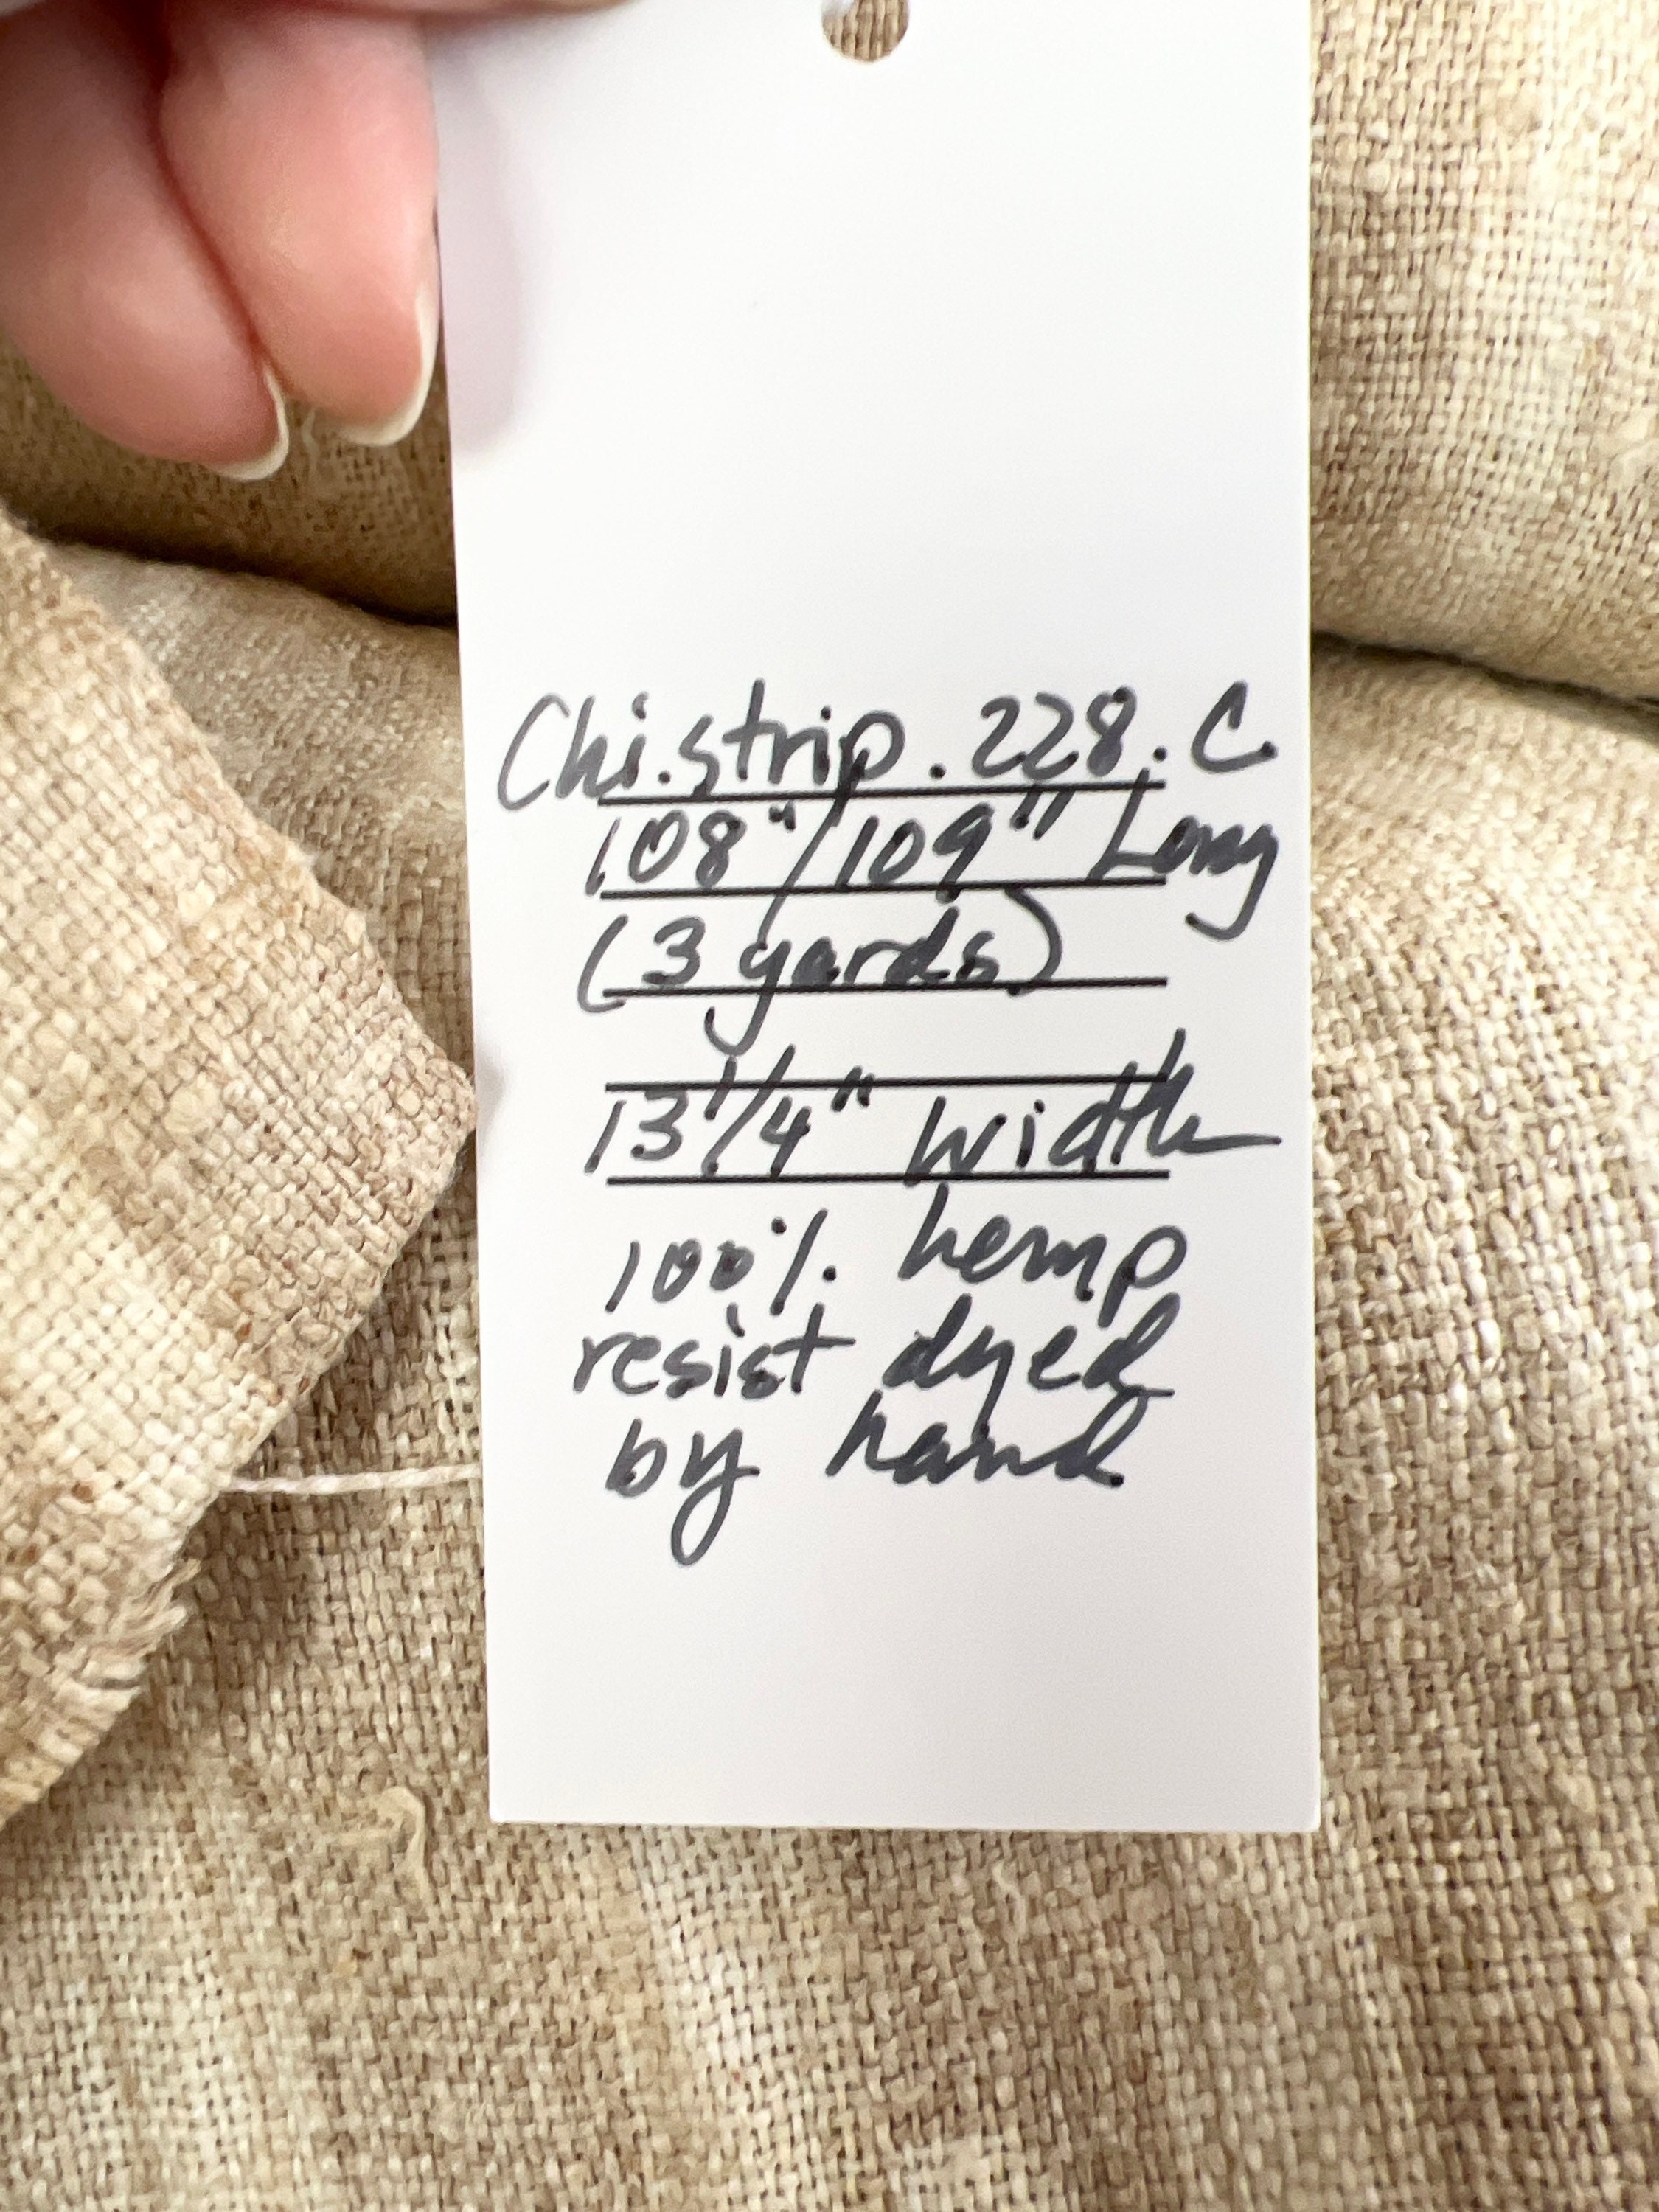 Chi.strip.228.C
108"/109" Long
(3 yards)
13 1/4" width
100% hemp
resist dyed
by hand